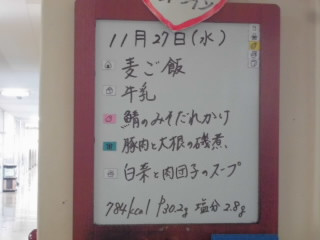 11月27日(水)
麦ご飯
牛乳
鯖のみそだれかけ
豚肉と大根の磯煮
白菜と肉団子のスープ
784kcal 30.2g 塩分 2.8g